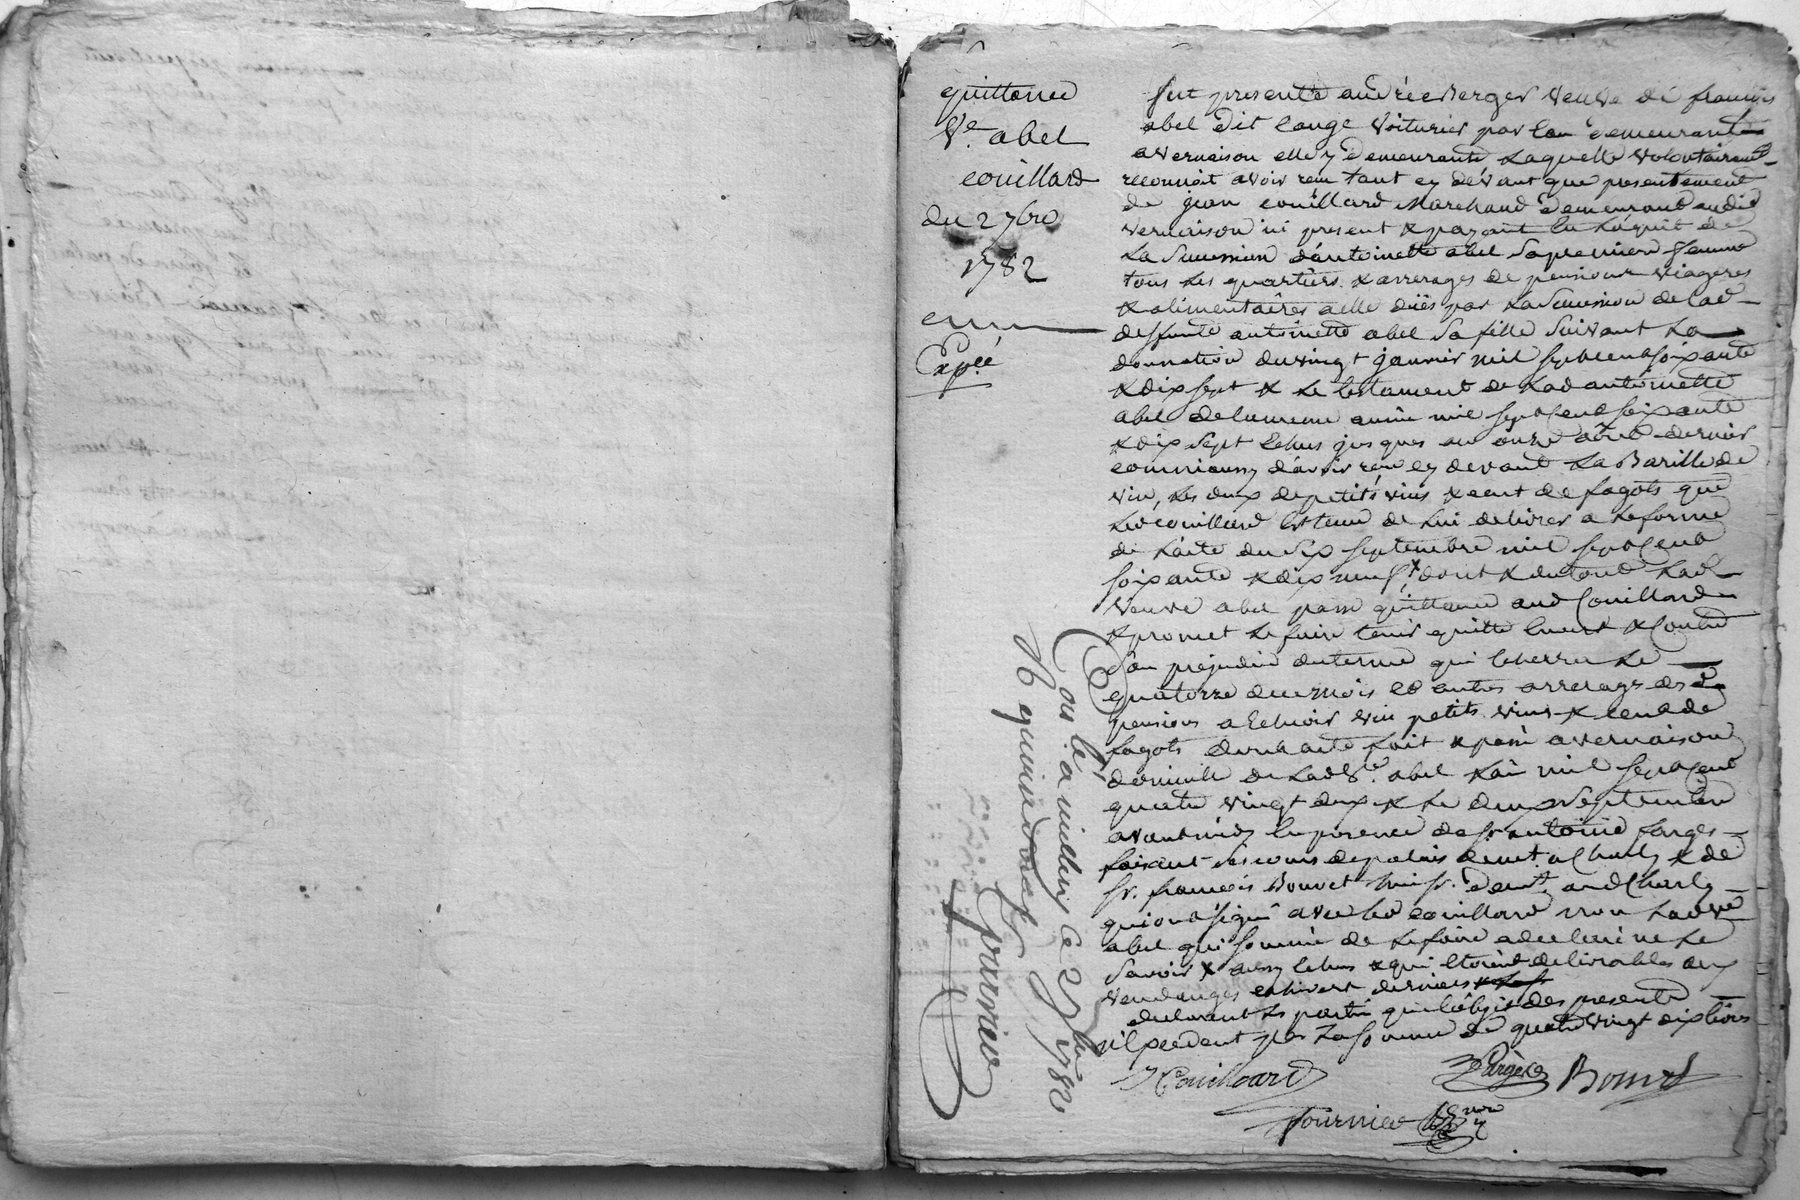 quittance
Ve. abel
couillard
du 2 7bre
1782
Expée
fut presente andrée Berger veuve de françois
abel dit lange voiturier par eau demeurante
a vernaison elle y demeurante Laquelle volontairemt
reconnoit avoir reçu tant cy devant que presentement
de jean couillard Marchand demeurant audit
vernaison ici present & payant en L'aquit de
La Succession d'antoinette abel Sa premiere femme
tous Les quartiers & arrerages de pensions viageres
& alimentaires a elle düës par La Succession de Lad
deffunte antoinette abel Sa fille Suivant La
donnation du vingt janvier mil Sept Cent Soixante
& dix Sept & Le testament de Lad antoinette
abel de la meme année mil Sept Cent Soixante
& dix Sept Echus jusques au onze aout dernier
comme aussy d'avoir reçu cy devant La Barille de
vin, Les deux de petits vins & cent de fagots que
Led couillard Est tenu de Lui delivrer a La forme
de L'acte du Six Septembre mil Sept Cent
Soixante & dix neuf & dont & du tout Lad
veuve abel passe quittance aud Couillard
& promet Le faire tenir quitte Envers & Contre
Sans prejudice du terme qui Echerra Le
quatorze du mois et autres arrerages des d
pensions a Echoir vin petits vins & Cent de
fagots dont acte fait & passé a vernaison
domicile de Lad Ve. abel L'an mil Sept Cent
quatre vingt deux & Le deux Septembre
avant midy En presence de Sr antoine farges
faisant Ses cours de palais demt. a Charly & de
Sr. françois Bouvet demt. aud Charly
qui ont Signé avec Led couillard non Lad ve
abel qui Sommée de Le faire a declaré ne Le
Savoir & aussy Echus & qui Etoient delivrables aux
vendanges et hivert derniers
declarent Les parties que L'objet des presentes
n'Excedent pas La Somme de quatre vingt dix livres
J Couillard
farges Bouvet
fournier nore
Conlé a millery ce 2 7bre 1782
R quinze sols
fournier